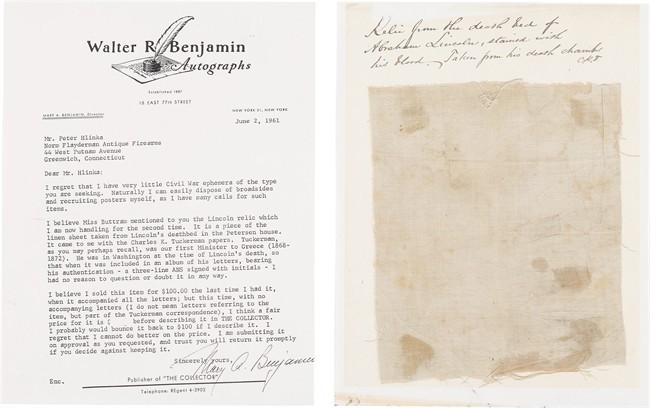 Walter R. Benjamin
Autographs
Established 1887
18 EAST 77th STREET
MARY A. BENJAMIN, Director
NEW YORK 21, NEW YORK
June 2, 1961
Mr. Peter Hlinka
Norm Flayderman Antique Firearms
44 West Putnam Avenue
Greenwich, Connecticut
Dear Mr. Hlinka:
I regret that I have very little Civil War ephemera of the type
you are seeking. Naturally I can easily dispose of broadsides
and recruiting posters myself, as I have many calls for such
items.
I believe Miss Buttram mentioned to you the Lincoln relic which
I am now handling for the second time. It is a piece of the
linen sheet taken from Lincoln's deathbed in the Petersen house.
It came to me with the Charles K. Tuckerman papers. Tuckerman,
as you may perhaps recall, was our first Minister to Greece (1868-
1872). He was in Washington at the time of Lincoln's death, so
that when it was included in an album of his letters, bearing
his authentication - a three-line ANS signed with initials - I
had no reason to question or doubt it in any way.
I believe I sold this item for $100.00 the last time I had it,
when it accompanied all the letters; but this time, with no
accompanying letters (I do not mean letters referring to the
item, but part of the Tuckerman correspondence), I think a fair
price for it is ( before describing it in THE COLLECTOR.
I probably would bounce it back to $100 if I describe it. I
regret that I cannot do better on the price. I am submitting it
on approval as you requested, and trust you will return it promptly
if you decide against keeping it.
Sincerely yours,
Mary A. Benjamin
Enc.
Publisher of "THE COLLECTOR"
Telephone: REgent 4-2902
Relic from the death bed of
Abraham Lincoln, stained with
his blood. Taken from his death chamber
CKT